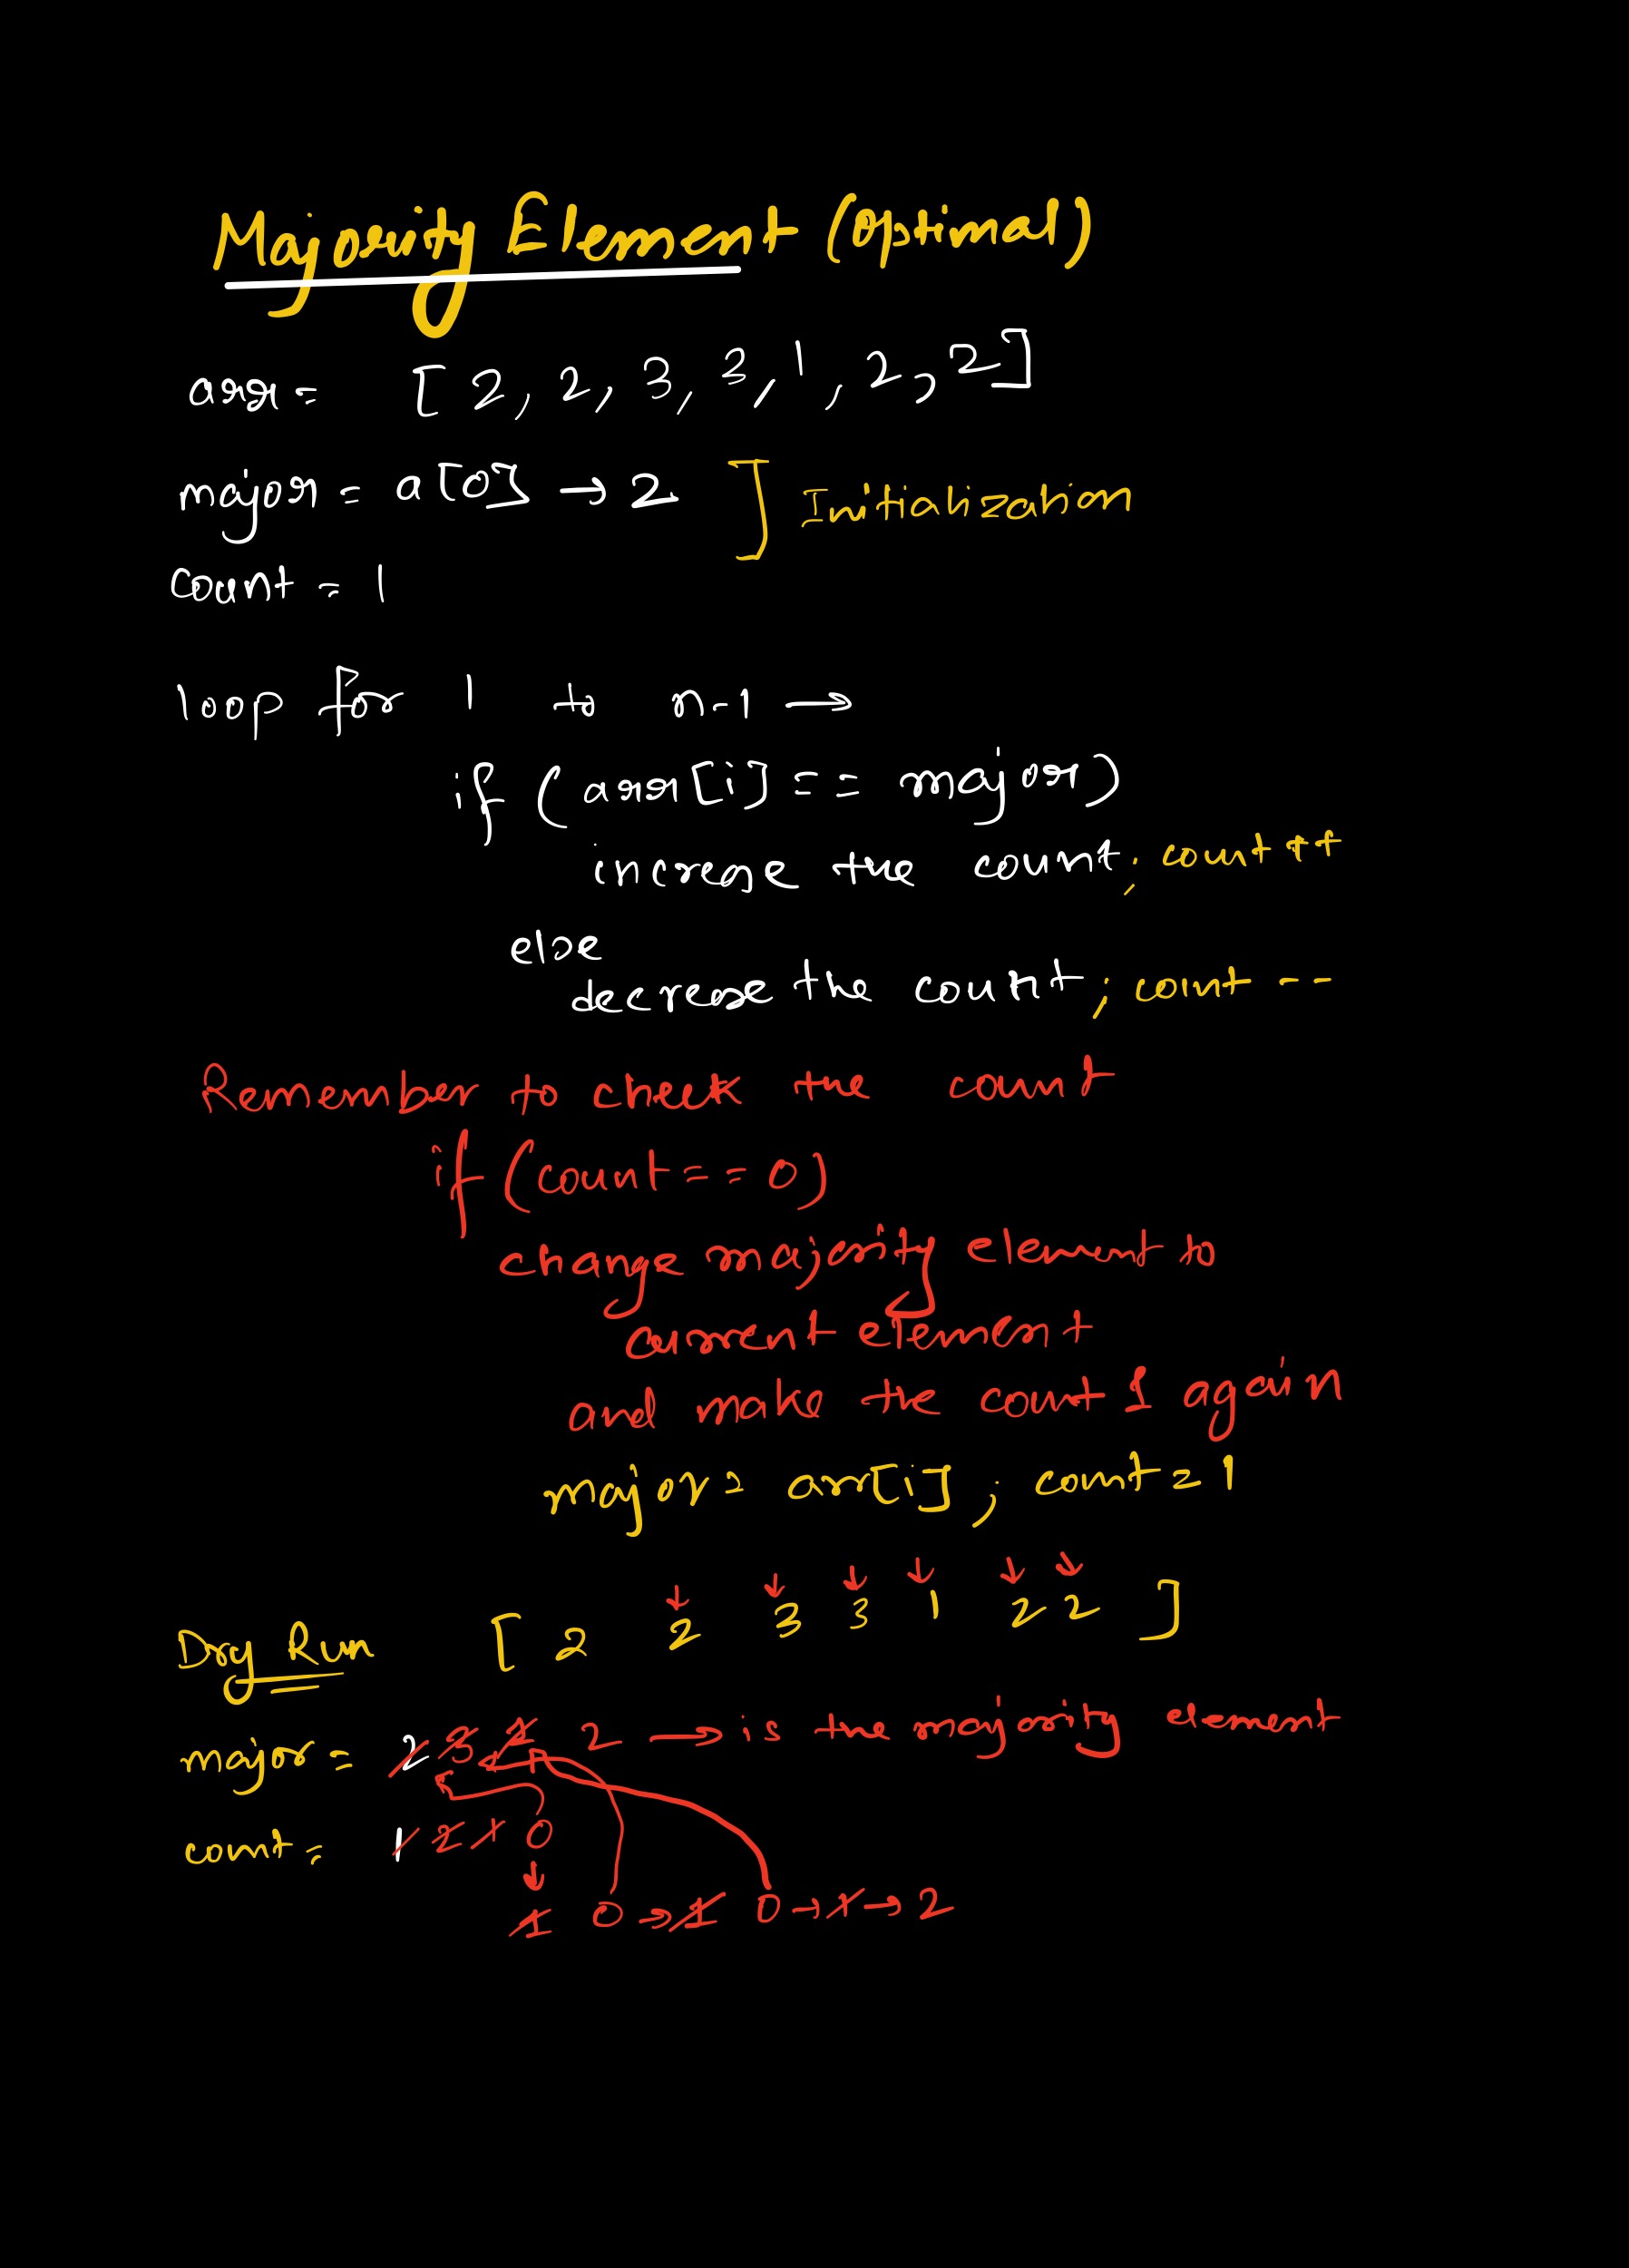 Majority Element (Optimal)
arr = [ 2, 2, 3, 3, 1, 2, 2 ]
major = a[0] → 2 ] Initialization
count = 1
loop for 1 to n-1 →
if (arr[i] == major)
increase the count; count++
else
decrease the count; count--
Remember to check the count
if (count == 0)
change majority element to
current element
and make the count 1 again
major = arr[i]; count = 1
↓ ↓ ↓ ↓ ↓ ↓
Dry Run [ 2 2 3 3 1 2 2 ]
major = 2 3 1 2 → is the majority element
count = 1 2 1 0
↓
1 0 → 1 0 → 1 → 2